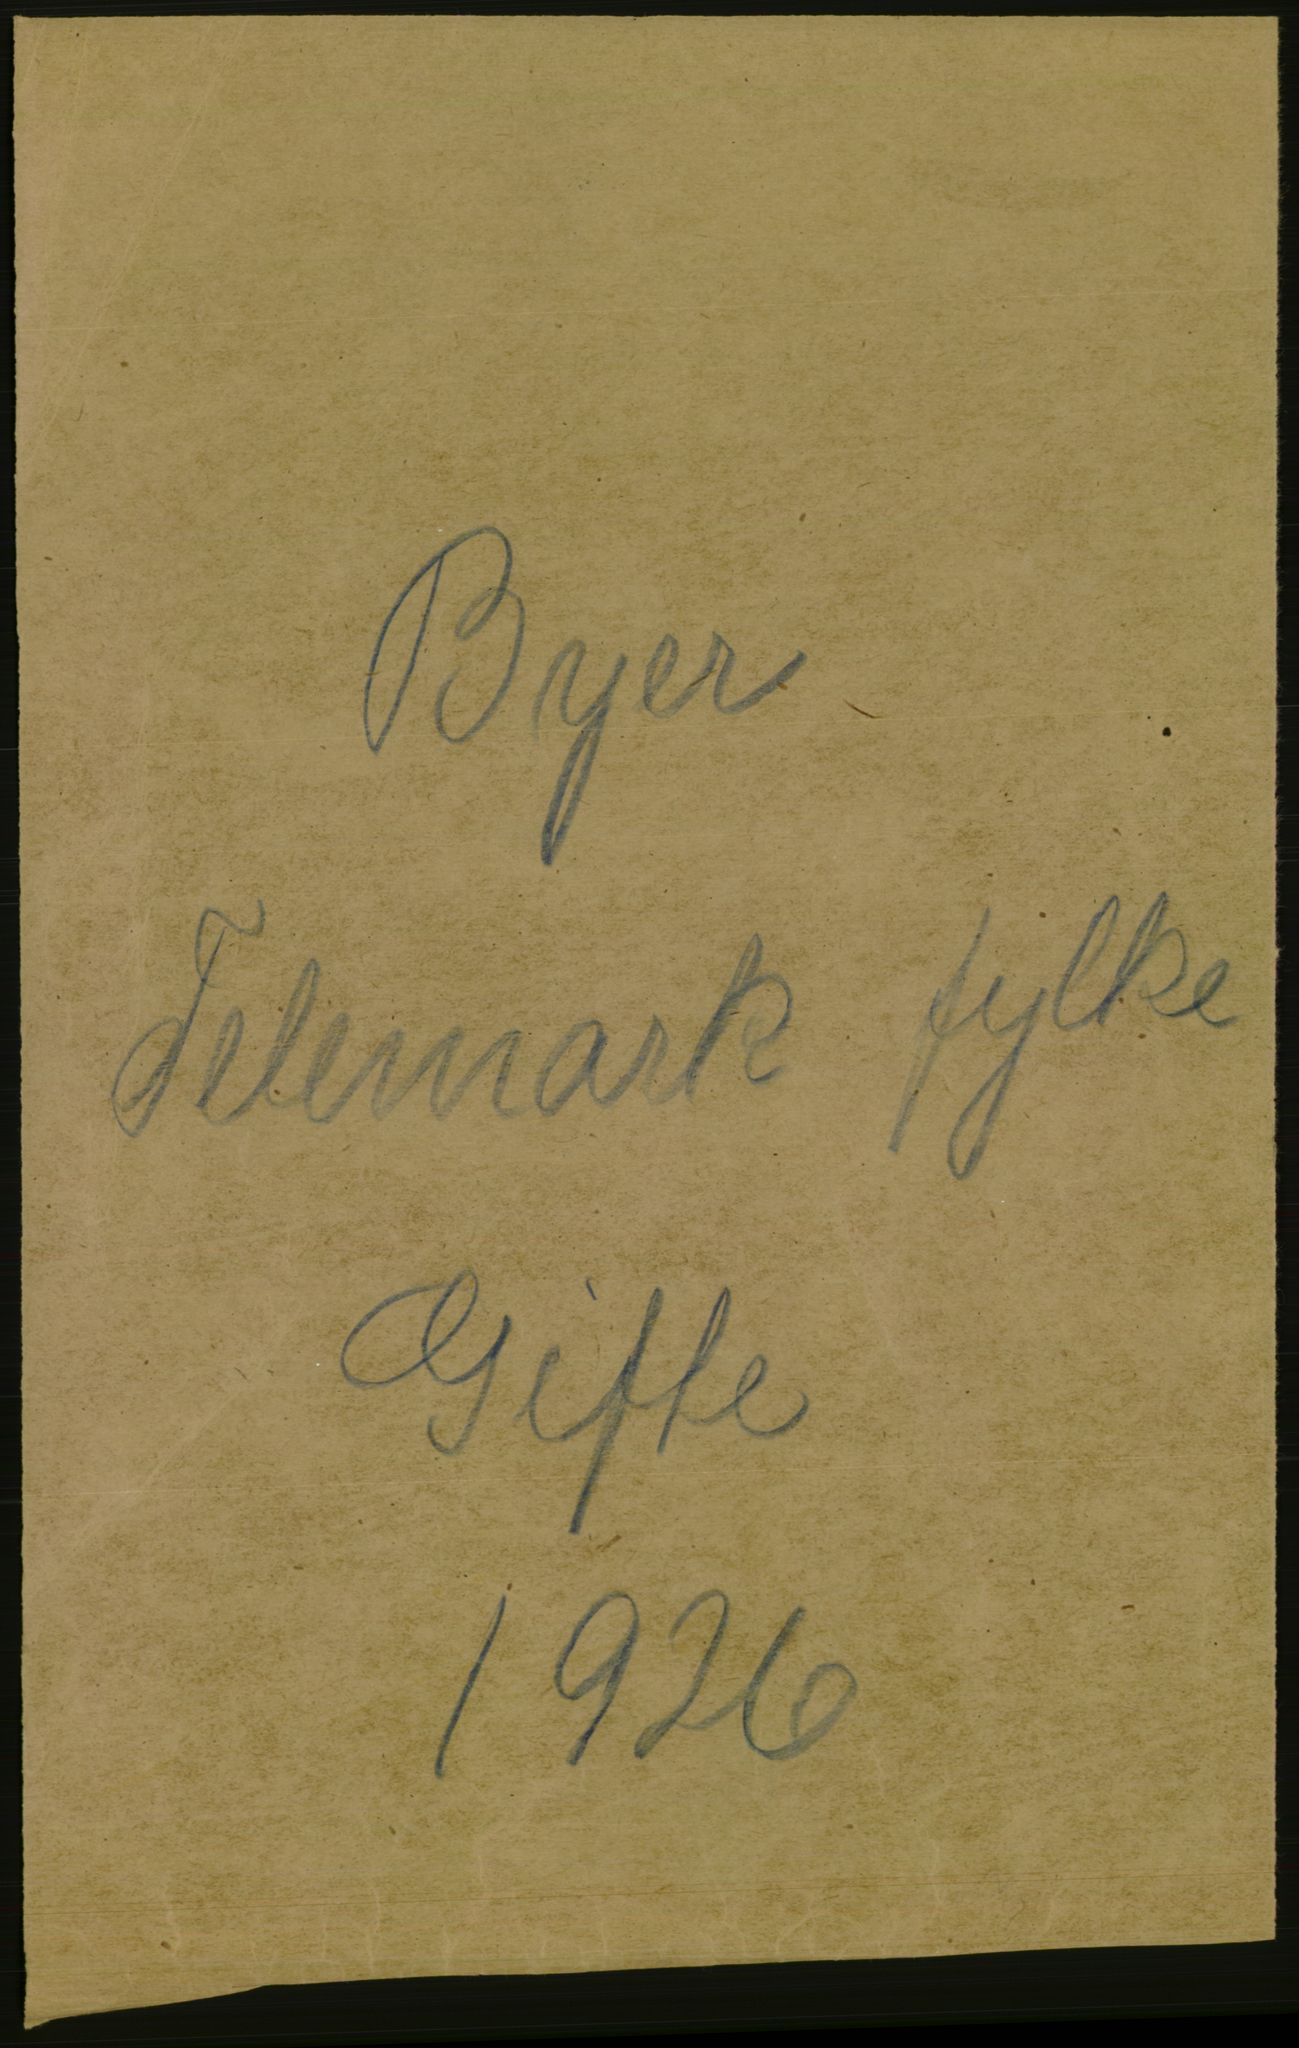 Byer
Telemark fylke
Gifte
1926